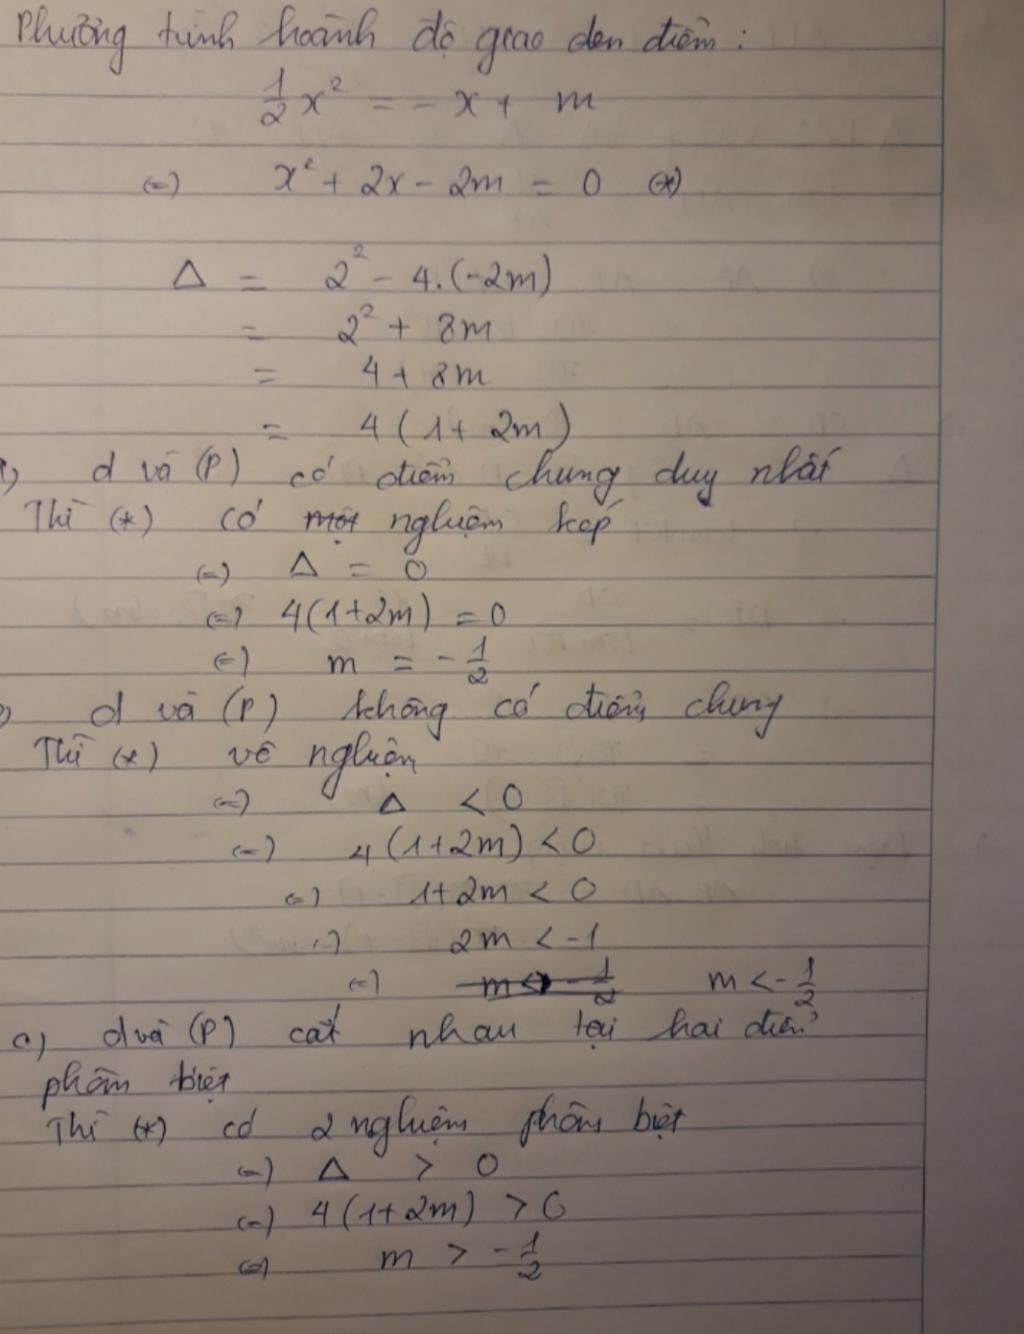 Phương trình hoành độ giao điểm:
1/2 x² = - x + m
(=) x² + 2x - 2m = 0 (*)
Δ = 2² - 4.(-2m)
= 2² + 8m
= 4 + 8m
= 4(1 + 2m)
d và (P) có điểm chung duy nhất
Thì (*) có một nghiệm kép
(=) Δ = 0
(=) 4(1+2m) = 0
(=) m = -1/2
d và (P) không có điểm chung
Thì (*) vô nghiệm
(=) Δ < 0
(=) 4(1+2m) < 0
(=) 1+2m < 0
(=) 2m < -1
(=) m < -1/2
c) d và (P) cắt nhau tại hai điểm
phân biệt
Thì (*) có 2 nghiệm phân biệt
(=) Δ > 0
(=) 4(1+2m) > 0
(=) m > -1/2